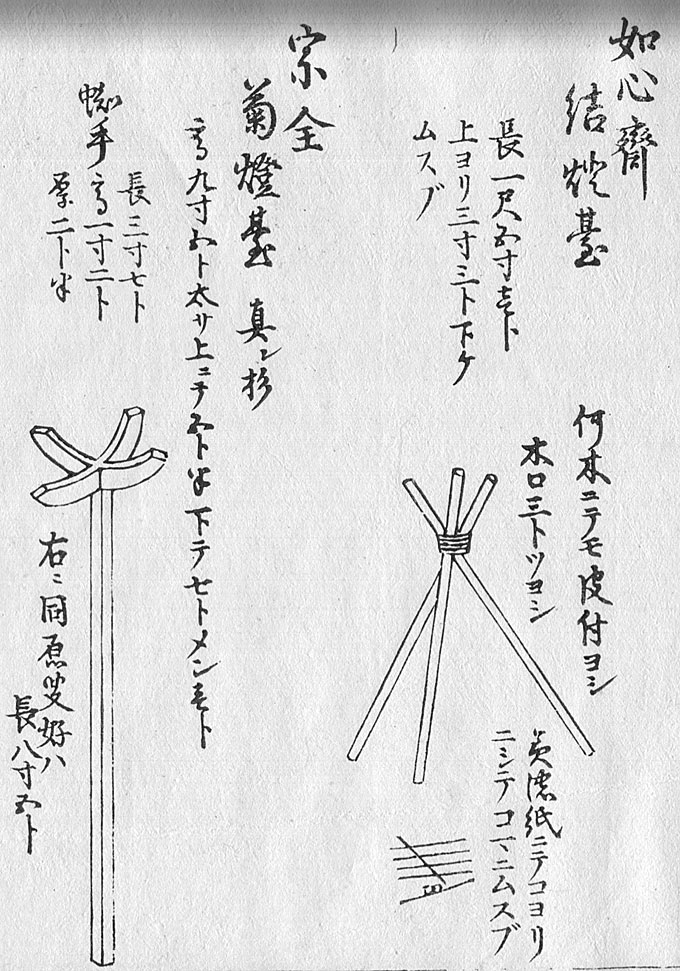 如心齋
結燈臺
長一尺五寸壱卜
上ヨリ三寸三卜下ケ
ムスブ
何木ニテモ皮付ヨシ
木口三卜ツヨシ
美濃紙ニテコヨリ
ニシテコマニムスブ
宗全
菊燈臺 真ン杉
高九寸五卜太サ上ニテ五卜半下テ七卜メン壱卜
蜘手
長三寸七卜
高一寸二卜
厚二卜半
右ニ同原叟好ハ
長八寸五卜